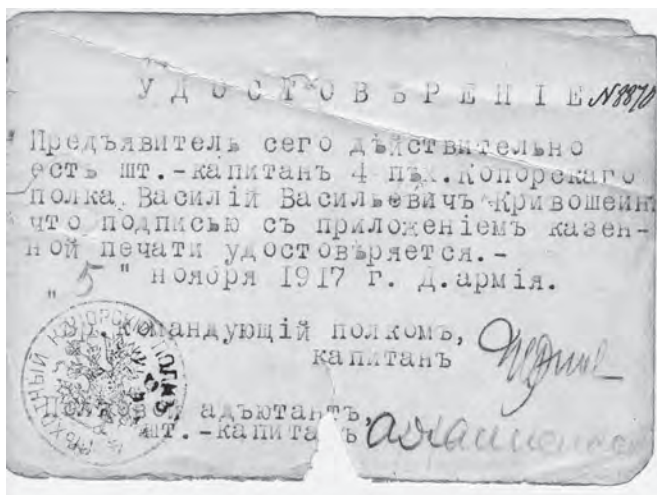 УДОСТОВѢРЕНІЕ №8870
Предъявитель сего дѣйствительно
есть шт.-капитанъ 4 пѣх.Копорскаго
полка Василій Васильевичъ Кривошеинъ
что подписью съ приложеніемъ казен-
ной печати удостовѣряется.-
"5" ноября 1917 г. Д.армія.
Вр. командующій полкомъ,
капитанъ
Полковой адъютантъ,
шт.-капитанъ